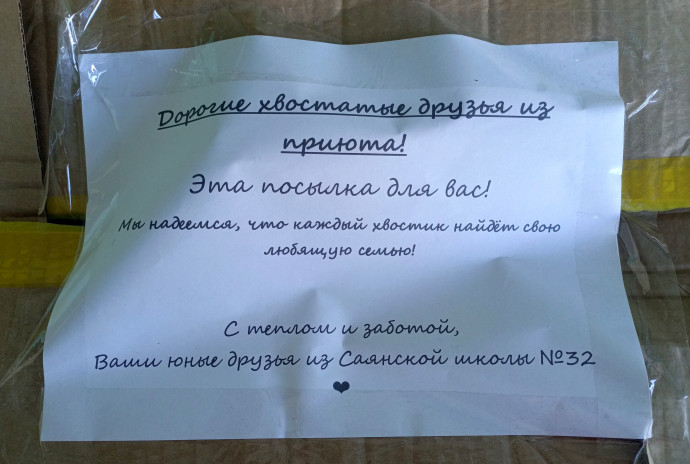 Дорогие хвостатые друзья из
приюта!
Эта посылка для вас!
Мы надеемся, что каждый хвостик найдёт свою
любящую семью!
С теплом и заботой,
Ваши юные друзья из Саянской школы №32
❤